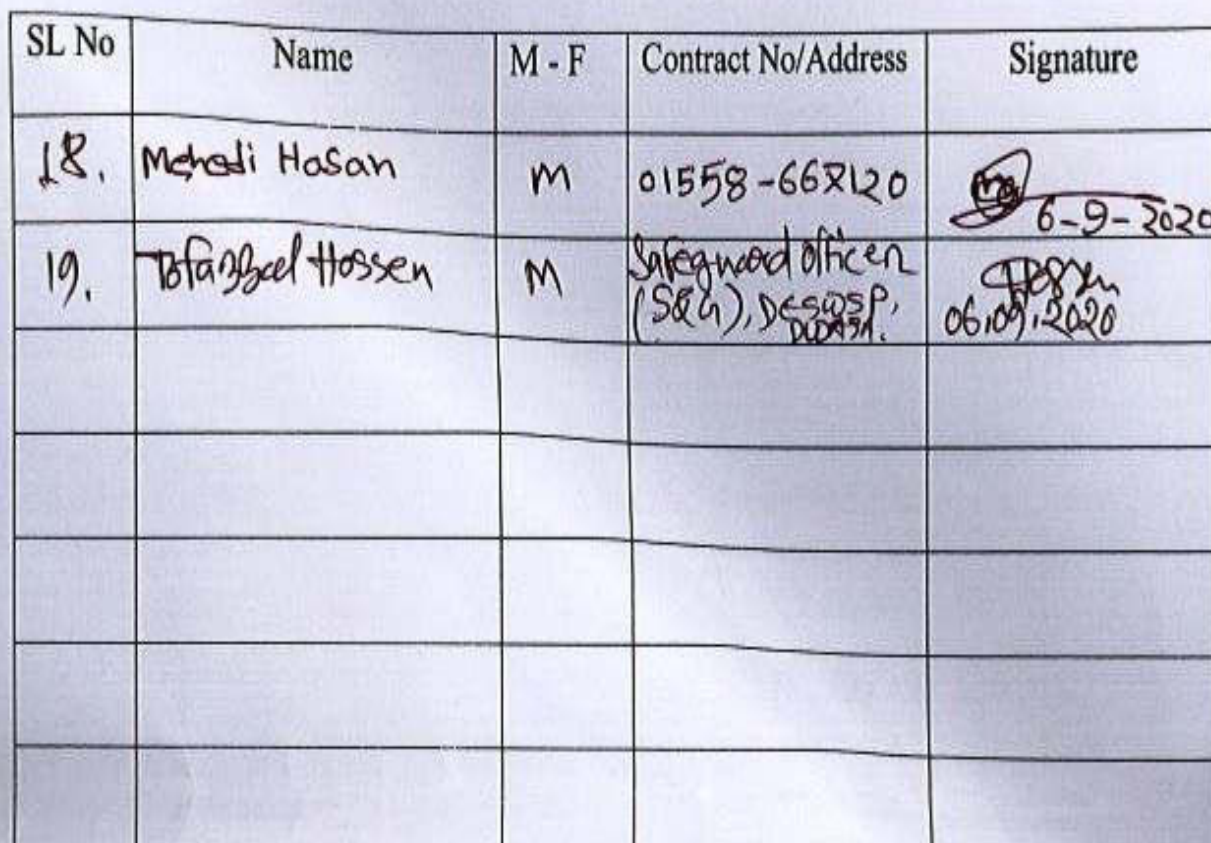 SL No Name M - F Contract No/Address Signature
18. Mehedi Hasan M 01558-66 120 6-9-2020
19. Tofazzal Hossen M Safeguard officer
(S&G), DESWSP, 06.09.2020
DWASA.